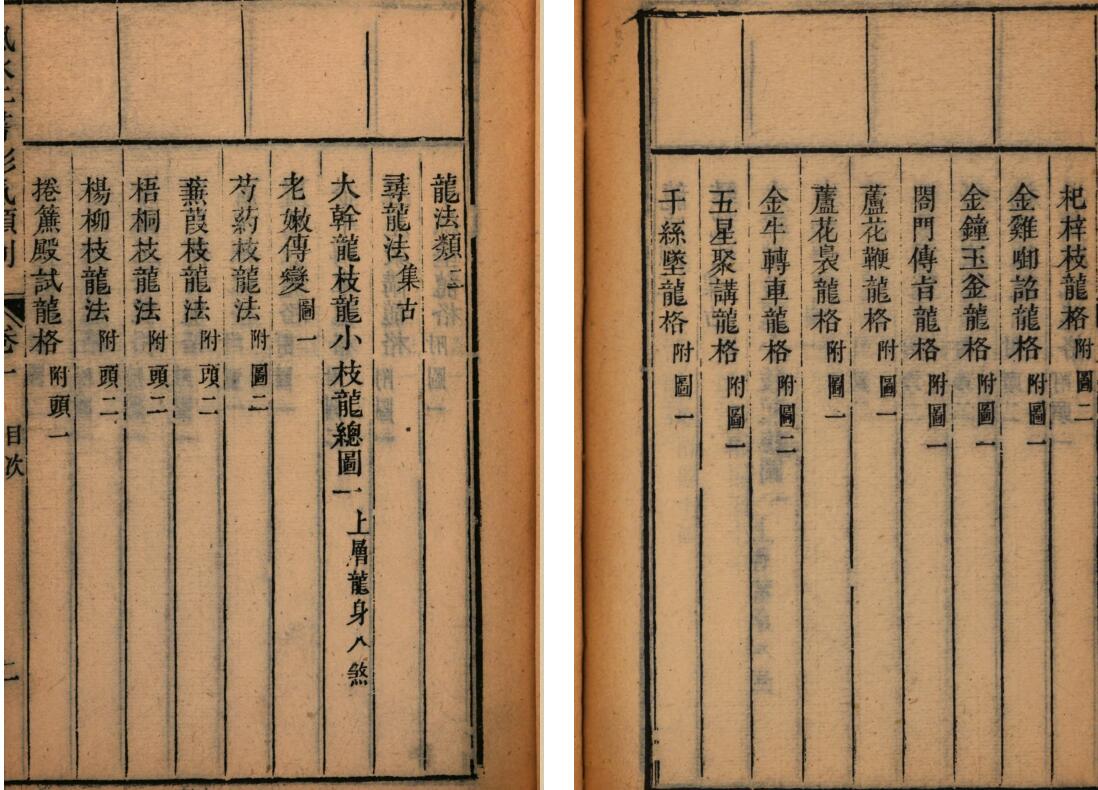 龍法類二
尋龍法集古
大幹龍枝龍小枝龍總圖一上層龍身八煞
老嫩傳變圖一
芍葯枝龍法附圖二
蒹葭枝龍法附頭二
梧桐枝龍法附頭二
楊柳枝龍法附頭二
捲簾殿試龍格附頭一
目次 二
杞梓枝龍格附圖二
金雞啣詔龍格附圖一
金鐘玉釜龍格附圖一
閤門傳旨龍格附圖一
蘆花鞭龍格附圖一
蘆花裊龍格附圖一
金牛轉車龍格附圖二
五星聚講龍格附圖一
千絲墜龍格附圖一